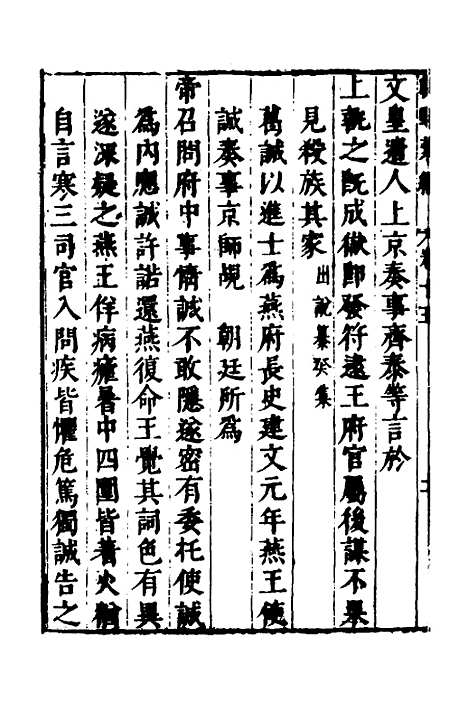 文皇遣人上京奏事齊泰等言於
上執之既成獄即發符逮王府官屬後謀不果
見殺族其家 出說纂癸集
葛誠以進士爲燕府長史建文元年燕王使
誠奏事京師覘 朝廷所爲
帝召問府中事情誠不敢隱遂密有委托使誠
爲內應誠許諾還燕復命王覺其詞色有異
遂深疑之燕王佯病瘧暑中四圍皆著火猶
自言寒三司官入問疾皆懼危篤獨誠告之